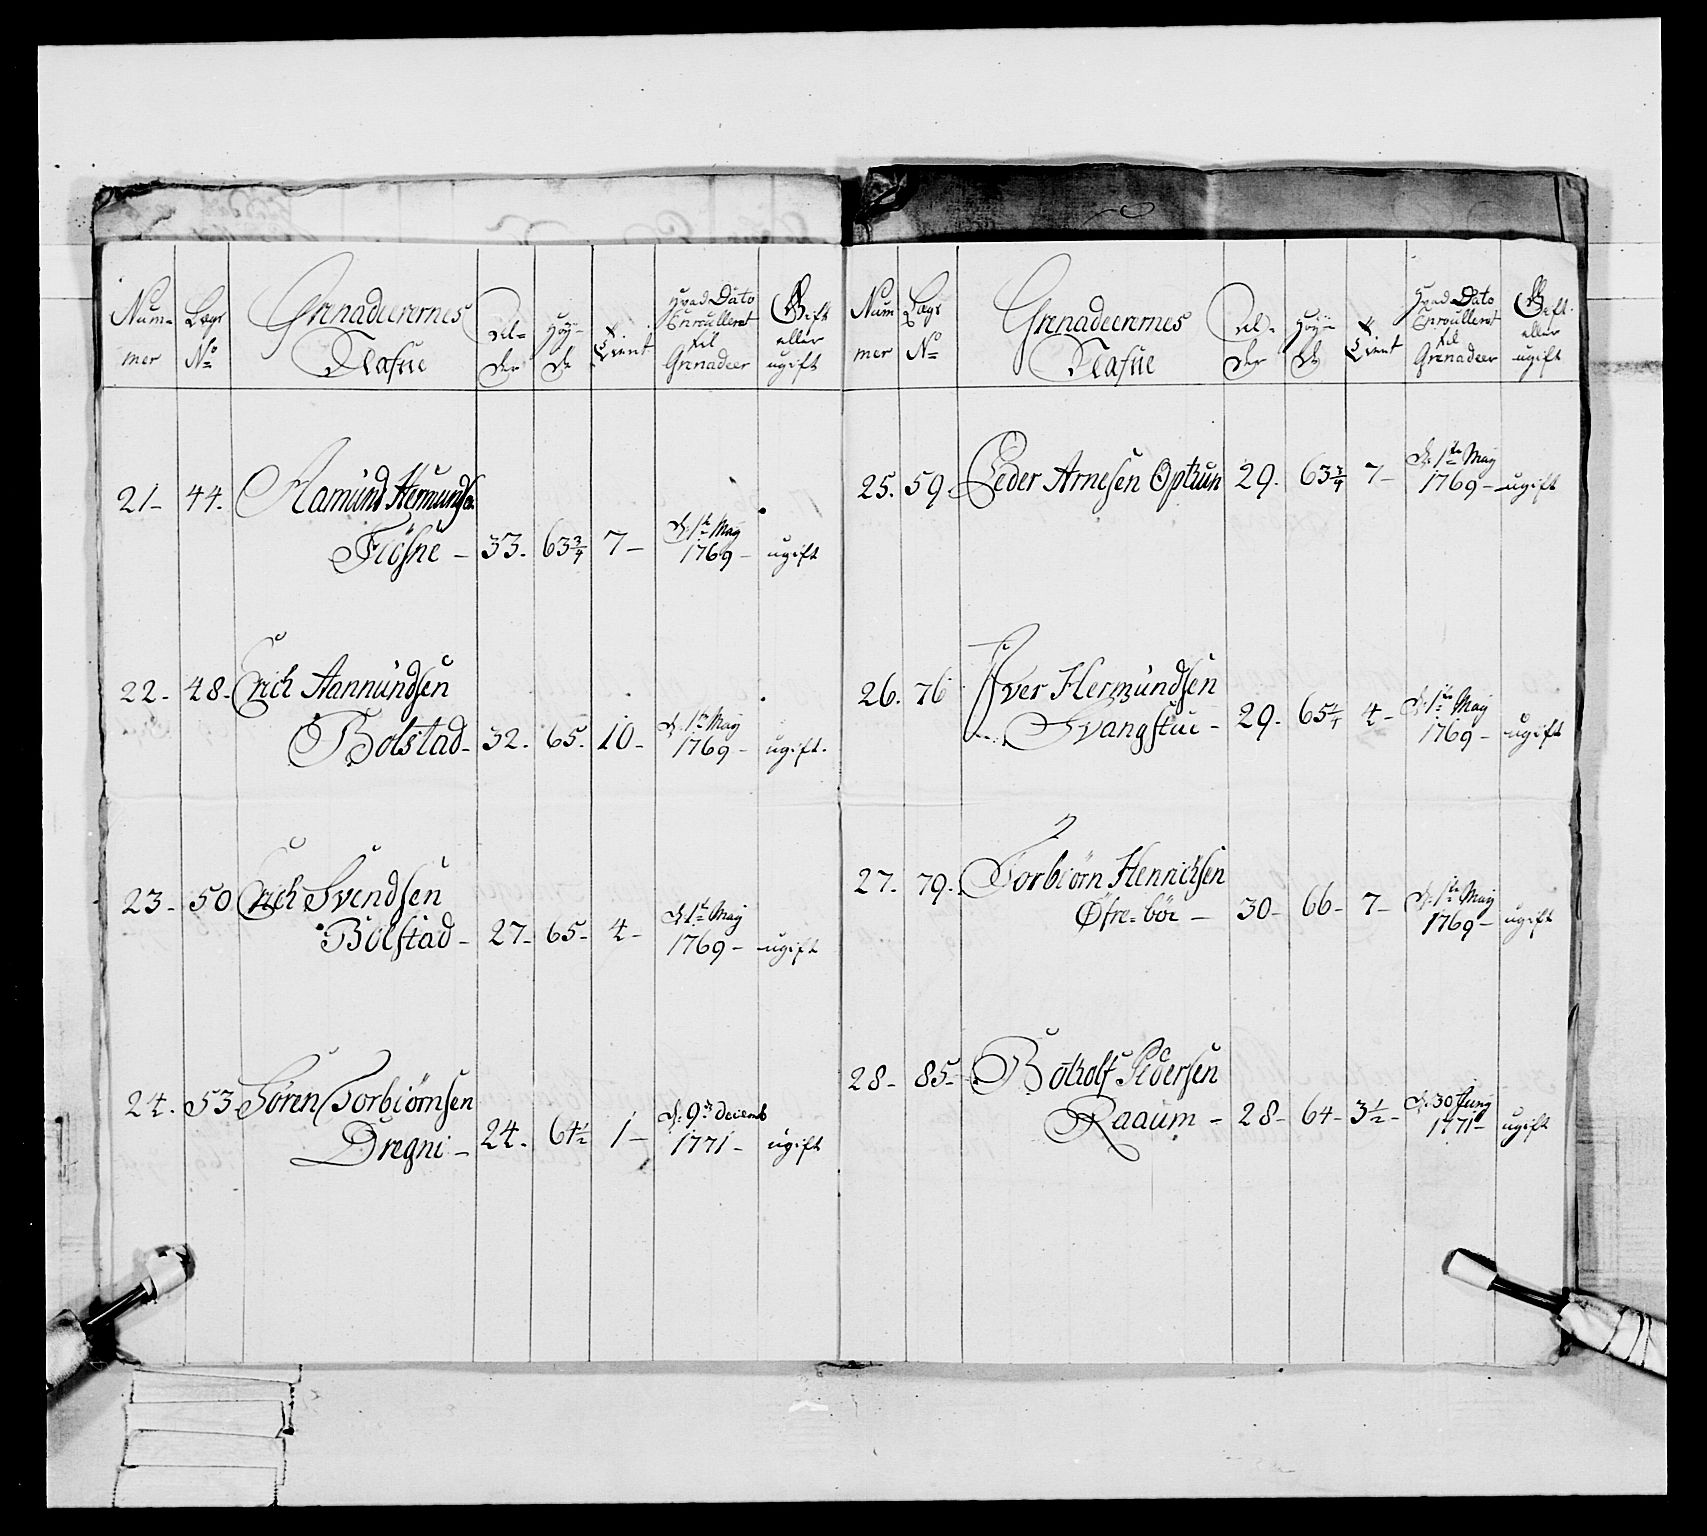 Num- mer
Lægs No
Grenadeerernes Nafne
Al- der
Høy- de
Tient
Hvad Dato Enroulleret til Grenadeer
Gift eller ugift
21- 44. Aamund Hermunds:
Fiösne - 33. 63 3/4 7- d: 1ste May 1769- ugift
22- 48- Erich Aanmundsen
Bolstad- 32. 65. 10- d: 1ste May 1769- ugift.
23- 50 Erich Svendsen
Bolstad- 27- 65- 4- d: 1ste May 1769- ugift
24. 53. Søren Torbiørnsen
Dregni- 24. 64 1/2 1- d: 9de decemb 1771- ugift
Num mer
Lægs No
Grenadeerernes Nafne
Al- der
Høy- de
Tient
Hvad Dato Enroulleret til Grenadeer
Gift eller ugift
25. 59. Peder Arnesen Optun 29. 63 3/4 7- d: 1ste May 1769- ugift
26. 76 Iver Hermundsen
Svangstue- 29. 65 1/4 4- d: 1ste May 1769- ugift
27. 79. Torbiørn Henrichsen
Øfre-böe- 30- 66- 7- d: 1ste May 1769- ugift
28- 85- Botholf Pedersen
Raaum- 28- 64- 3 1/2- d: 30 Juny 1771- ugift